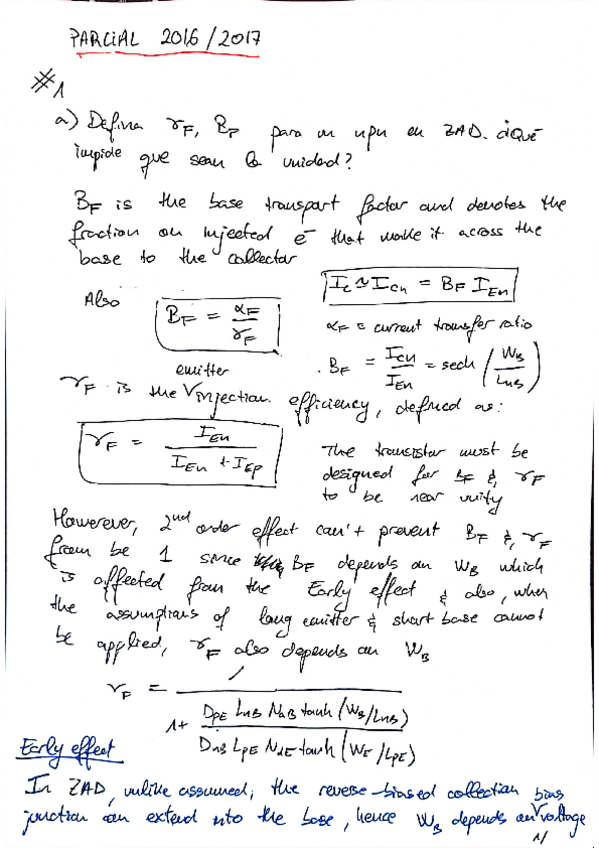 PARCIAL 2016/2017
#1
a) Defina γF, BF para un npn en ZAD. ¿Qué
impide que sean la unidad?
BF is the base transport factor and denotes the
fraction on injected e- that make it across the
base to the collector
IC ≃ ICn = BF IEn
Also
BF = αF / γF
αF = current transfer ratio
. BF = ICn / IEn = sech (WB / LnB)
emitter
γF is the injection efficiency, defined as:
γF = IEn / (IEn + IEp)
The transistor must be
designed for BF & γF
to be near unity
Howerever, 2nd order effect can't prevent BF & γF
from be 1 since BF depends on WB which
is affected from the Early effect & also, when
the assumptions of long emitter & short base cannot
be applied, γF also depends on WB
γF = 1 / (1 + DpE LnB NaB tanh (WB/LnB) / DnB LpE NdE tanh (WE/LpE))
Early effect
In ZAD, unlike assumed, the reverse-biased collection bias
junction can extend into the base, hence WB depends on voltage
1/